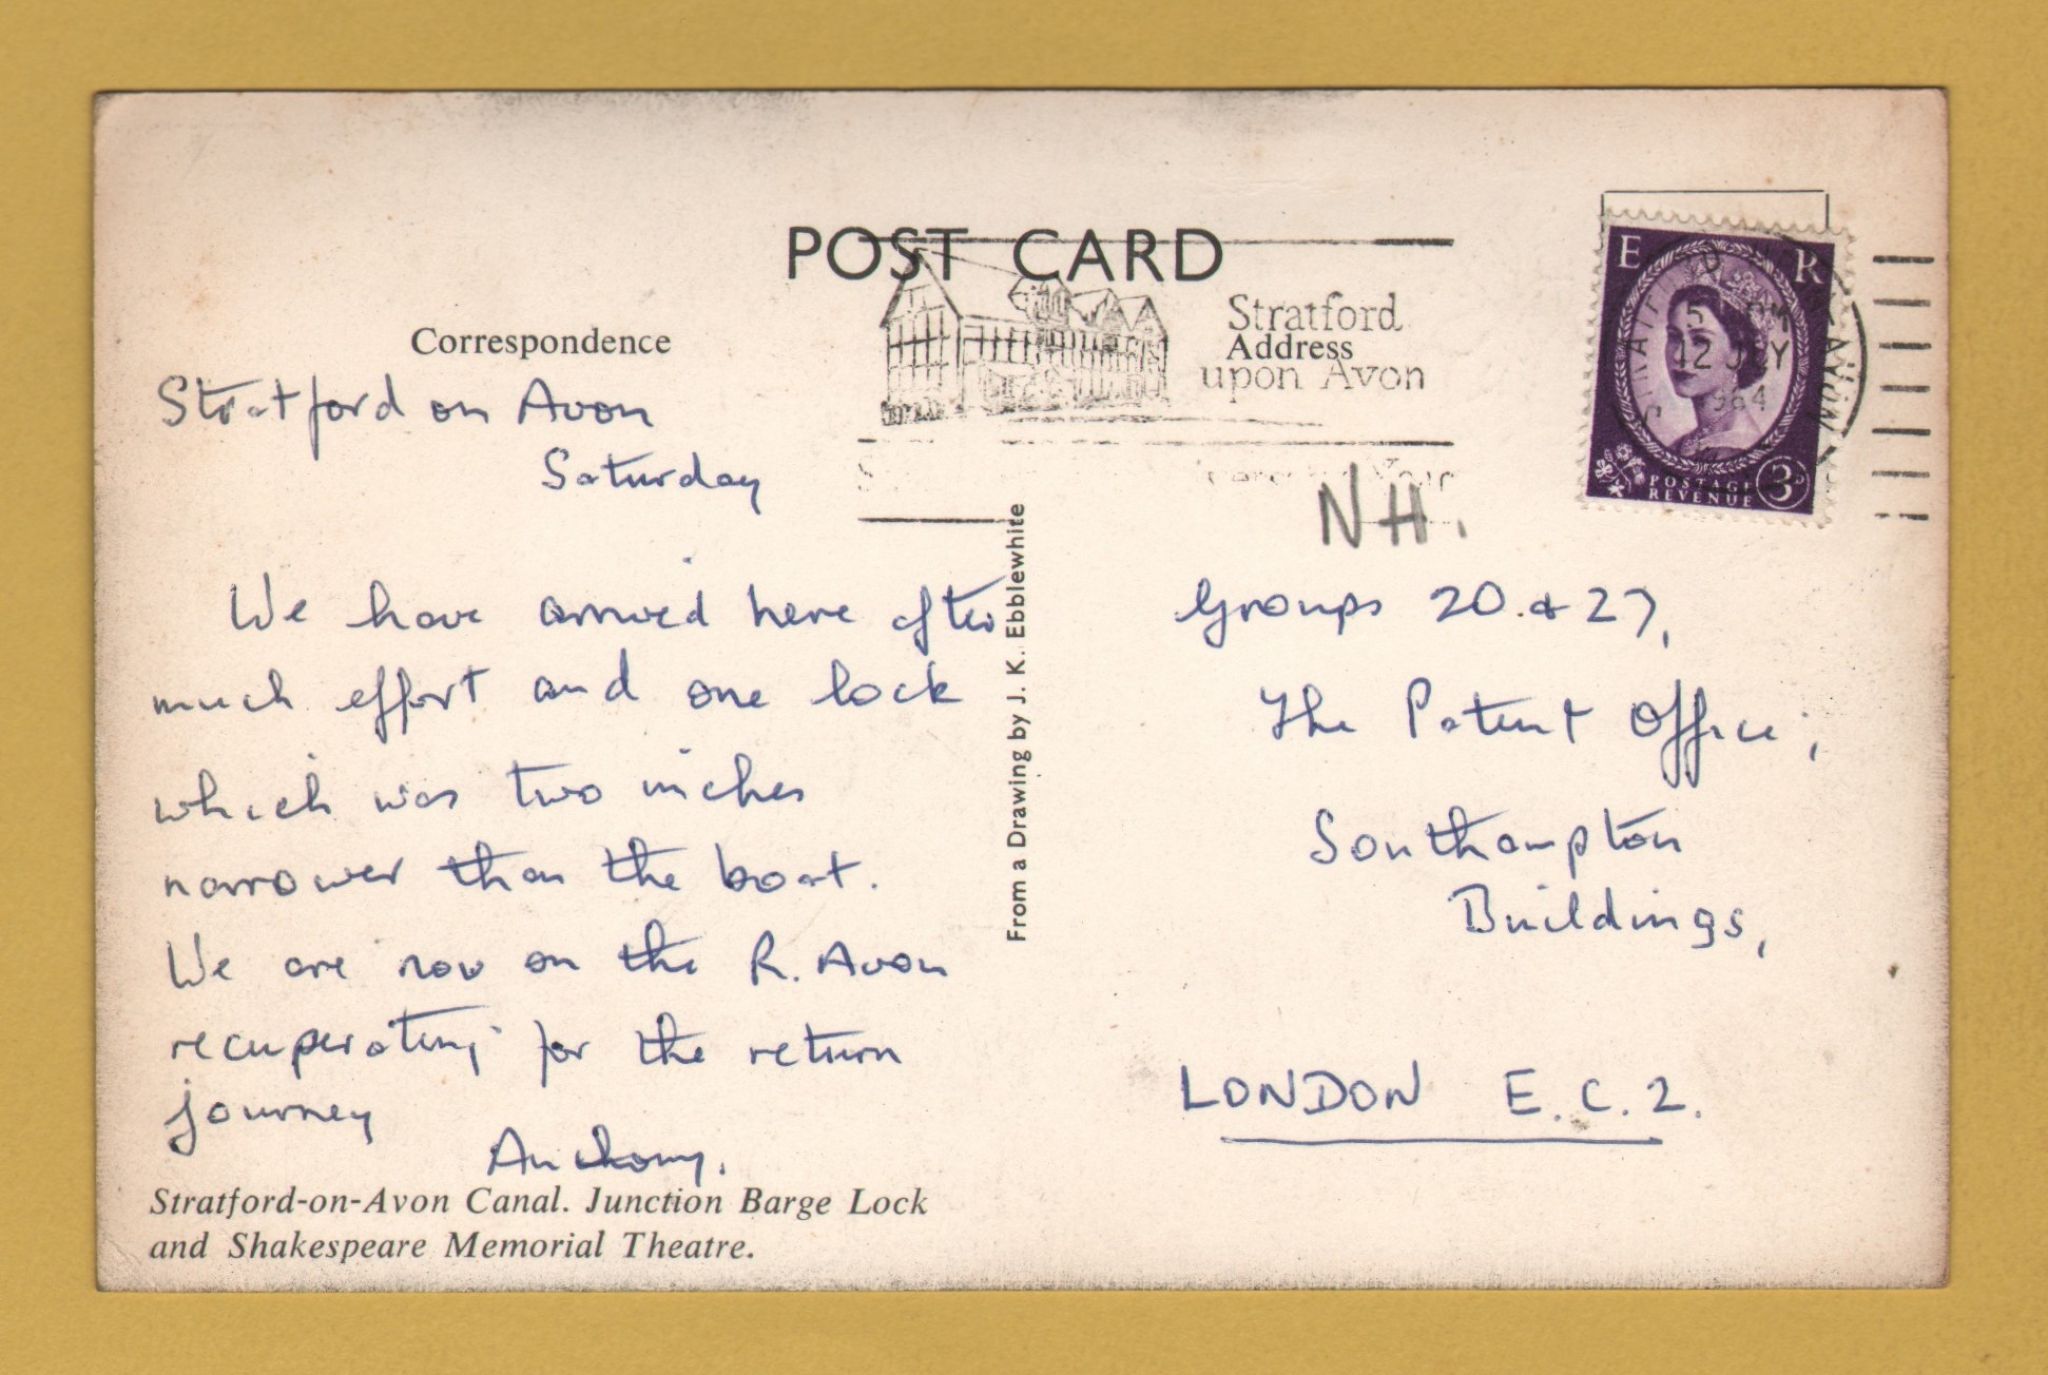 POST CARD
Correspondence
Address
Stratford
upon Avon
E R
5 PM
12 JLY
1964
POSTAGE
REVENUE
3D
Stratford on Avon
Saturday
We have arrived here after
much effort and one lock
which was two inches
narrower than the boat.
We are now on the R. Avon
recuperating for the return
journey
Anthony.
Stratford-on-Avon Canal. Junction Barge Lock
and Shakespeare Memorial Theatre.
From a Drawing by J. K. Ebblewhite
NH.
Groups 20 & 27,
The Patent Office,
Southampton
Buildings,
LONDON E.C.2.